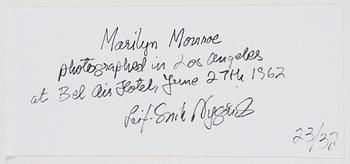 Marilyn Monroe
photographed in Los Angeles
at Bel Air Hotel, June 27th 1962
Leif-Erik Nygårds
23/32